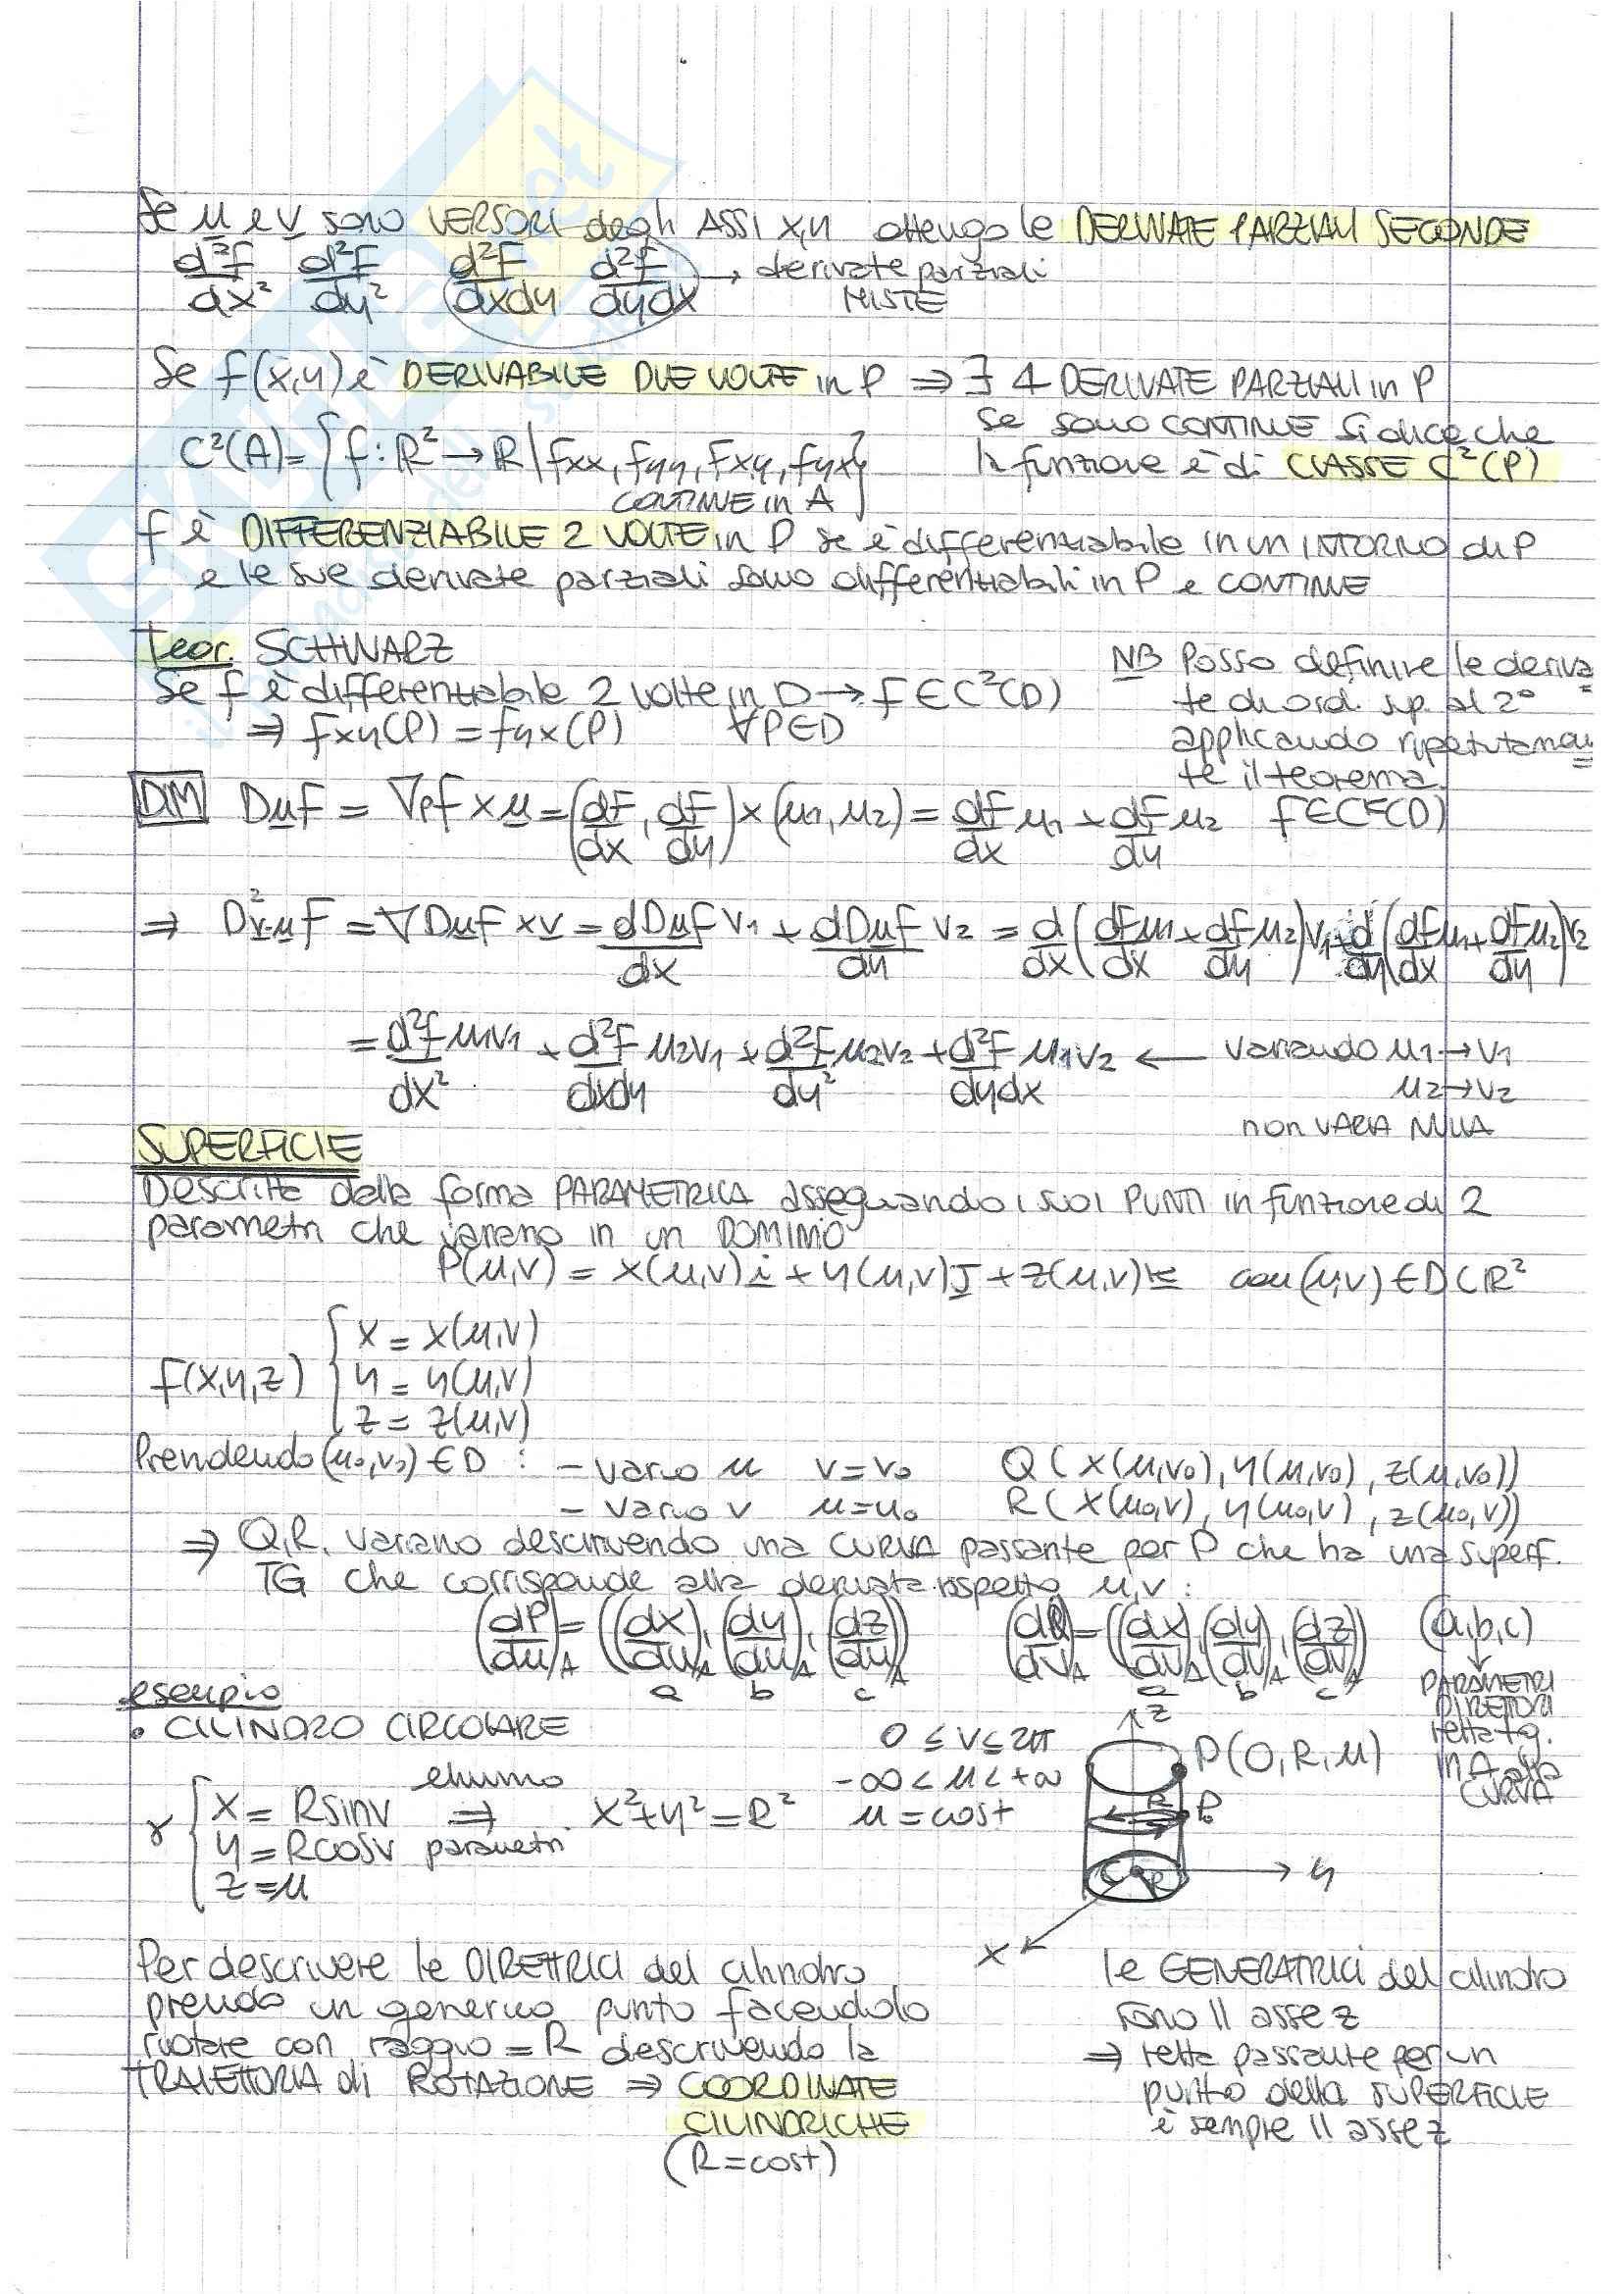 Se u e v sono VERSORI degli ASSI x,y ottengo le DERIVATE PARZIALI SECONDE
d²f/dx² d²f/dy² d²f/dxdy d²f/dydx → derivate parziali MISTE
Se f(x,y) è DERIVABILE DUE VOLTE in P ⇒ ∃ 4 DERIVATE PARZIALI in P
se sono CONTINUE si dice che
la funzione è di CLASSE C²(P)
C²(A) = {f: R² → R | fxx, fyy, fxy, fyx CONTINUE in A}
f è DIFFERENZIABILE 2 VOLTE in P se è differenziabile in un INTORNO di P
e le sue derivate parziali sono differenziabili in P e CONTINUE
Teor. SCHWARZ
Se f è differenziabile 2 volte in D → f ∈ C²(D)
⇒ fxy(P) = fyx(P) ∀P∈D
NB Posso definire le deriva
te di ord. sup. al 2°
applicando ripetutamen
te il teorema
DIM Duf = ∇pf × u = (df/dx, df/dy) × (u1, u2) = df/dx u1 + df/dy u2
⇒ D²v·uf = ∇Duf × v = dDuf/dx v1 + dDuf/dy v2 = d/dx (df/dx u1 + df/dy u2) v1 + d/dy (df/dx u1 + df/dy u2) v2
= d²f/dx² u1v1 + d²f/dxdy u2v1 + d²f/dy² u2v2 + d²f/dydx u1v2 ← variando u1 → v1
u2 → v2
non VARIA NULLA
SUPERFICIE
Descritta dalla forma PARAMETRICA assegnando i suoi PUNTI in funzione di 2
parametri che variano in un DOMINIO
P(u,v) = x(u,v)i + y(u,v)j + z(u,v)k con (u,v) ∈ D ⊂ R²
f(x,y,z) { x = x(u,v)
y = y(u,v)
z = z(u,v)
Prendendo (u0,v0) ∈ D : - vario u v=v0 Q(x(u,v0), y(u,v0), z(u,v0))
- vario v u=u0 R(x(u0,v), y(u0,v), z(u0,v))
⇒ Q,R, variano descrivendo una CURVA passante per P che ha una superf.
TG che corrisponde alla derivata rispetto u,v :
(dP/du)A = ((dx/du)A, (dy/du)A, (dz/du)A) (dQ/dv)A = ((dx/dv)A, (dy/dv)A, (dz/dv)A) (a,b,c)
a b c a b c
↓
PARAMETRI
DIRETTORI
retta tg.
in A alla
CURVA
esempio
• CILINDRO CIRCOLARE
γ { x = R sinv
y = R cosv
z = u
elimino
⇒
parametri
x² + y² = R²
0 ≤ v ≤ 2π
-∞ < u < +∞
u = cost
z
P(0,R,u)
R
P0
C
R
y
x
Per descrivere le DIRETTRICI del cilindro
prendo un generico punto facendolo
ruotare con raggio = R descrivendo la
TRAIETTORIA di ROTAZIONE ⇒ COORDINATE
CILINDRICHE
(R=cost)
le GENERATRICI del cilindro
sono || asse z
⇒ retta passante per un
punto della SUPERFICIE
è sempre || asse z